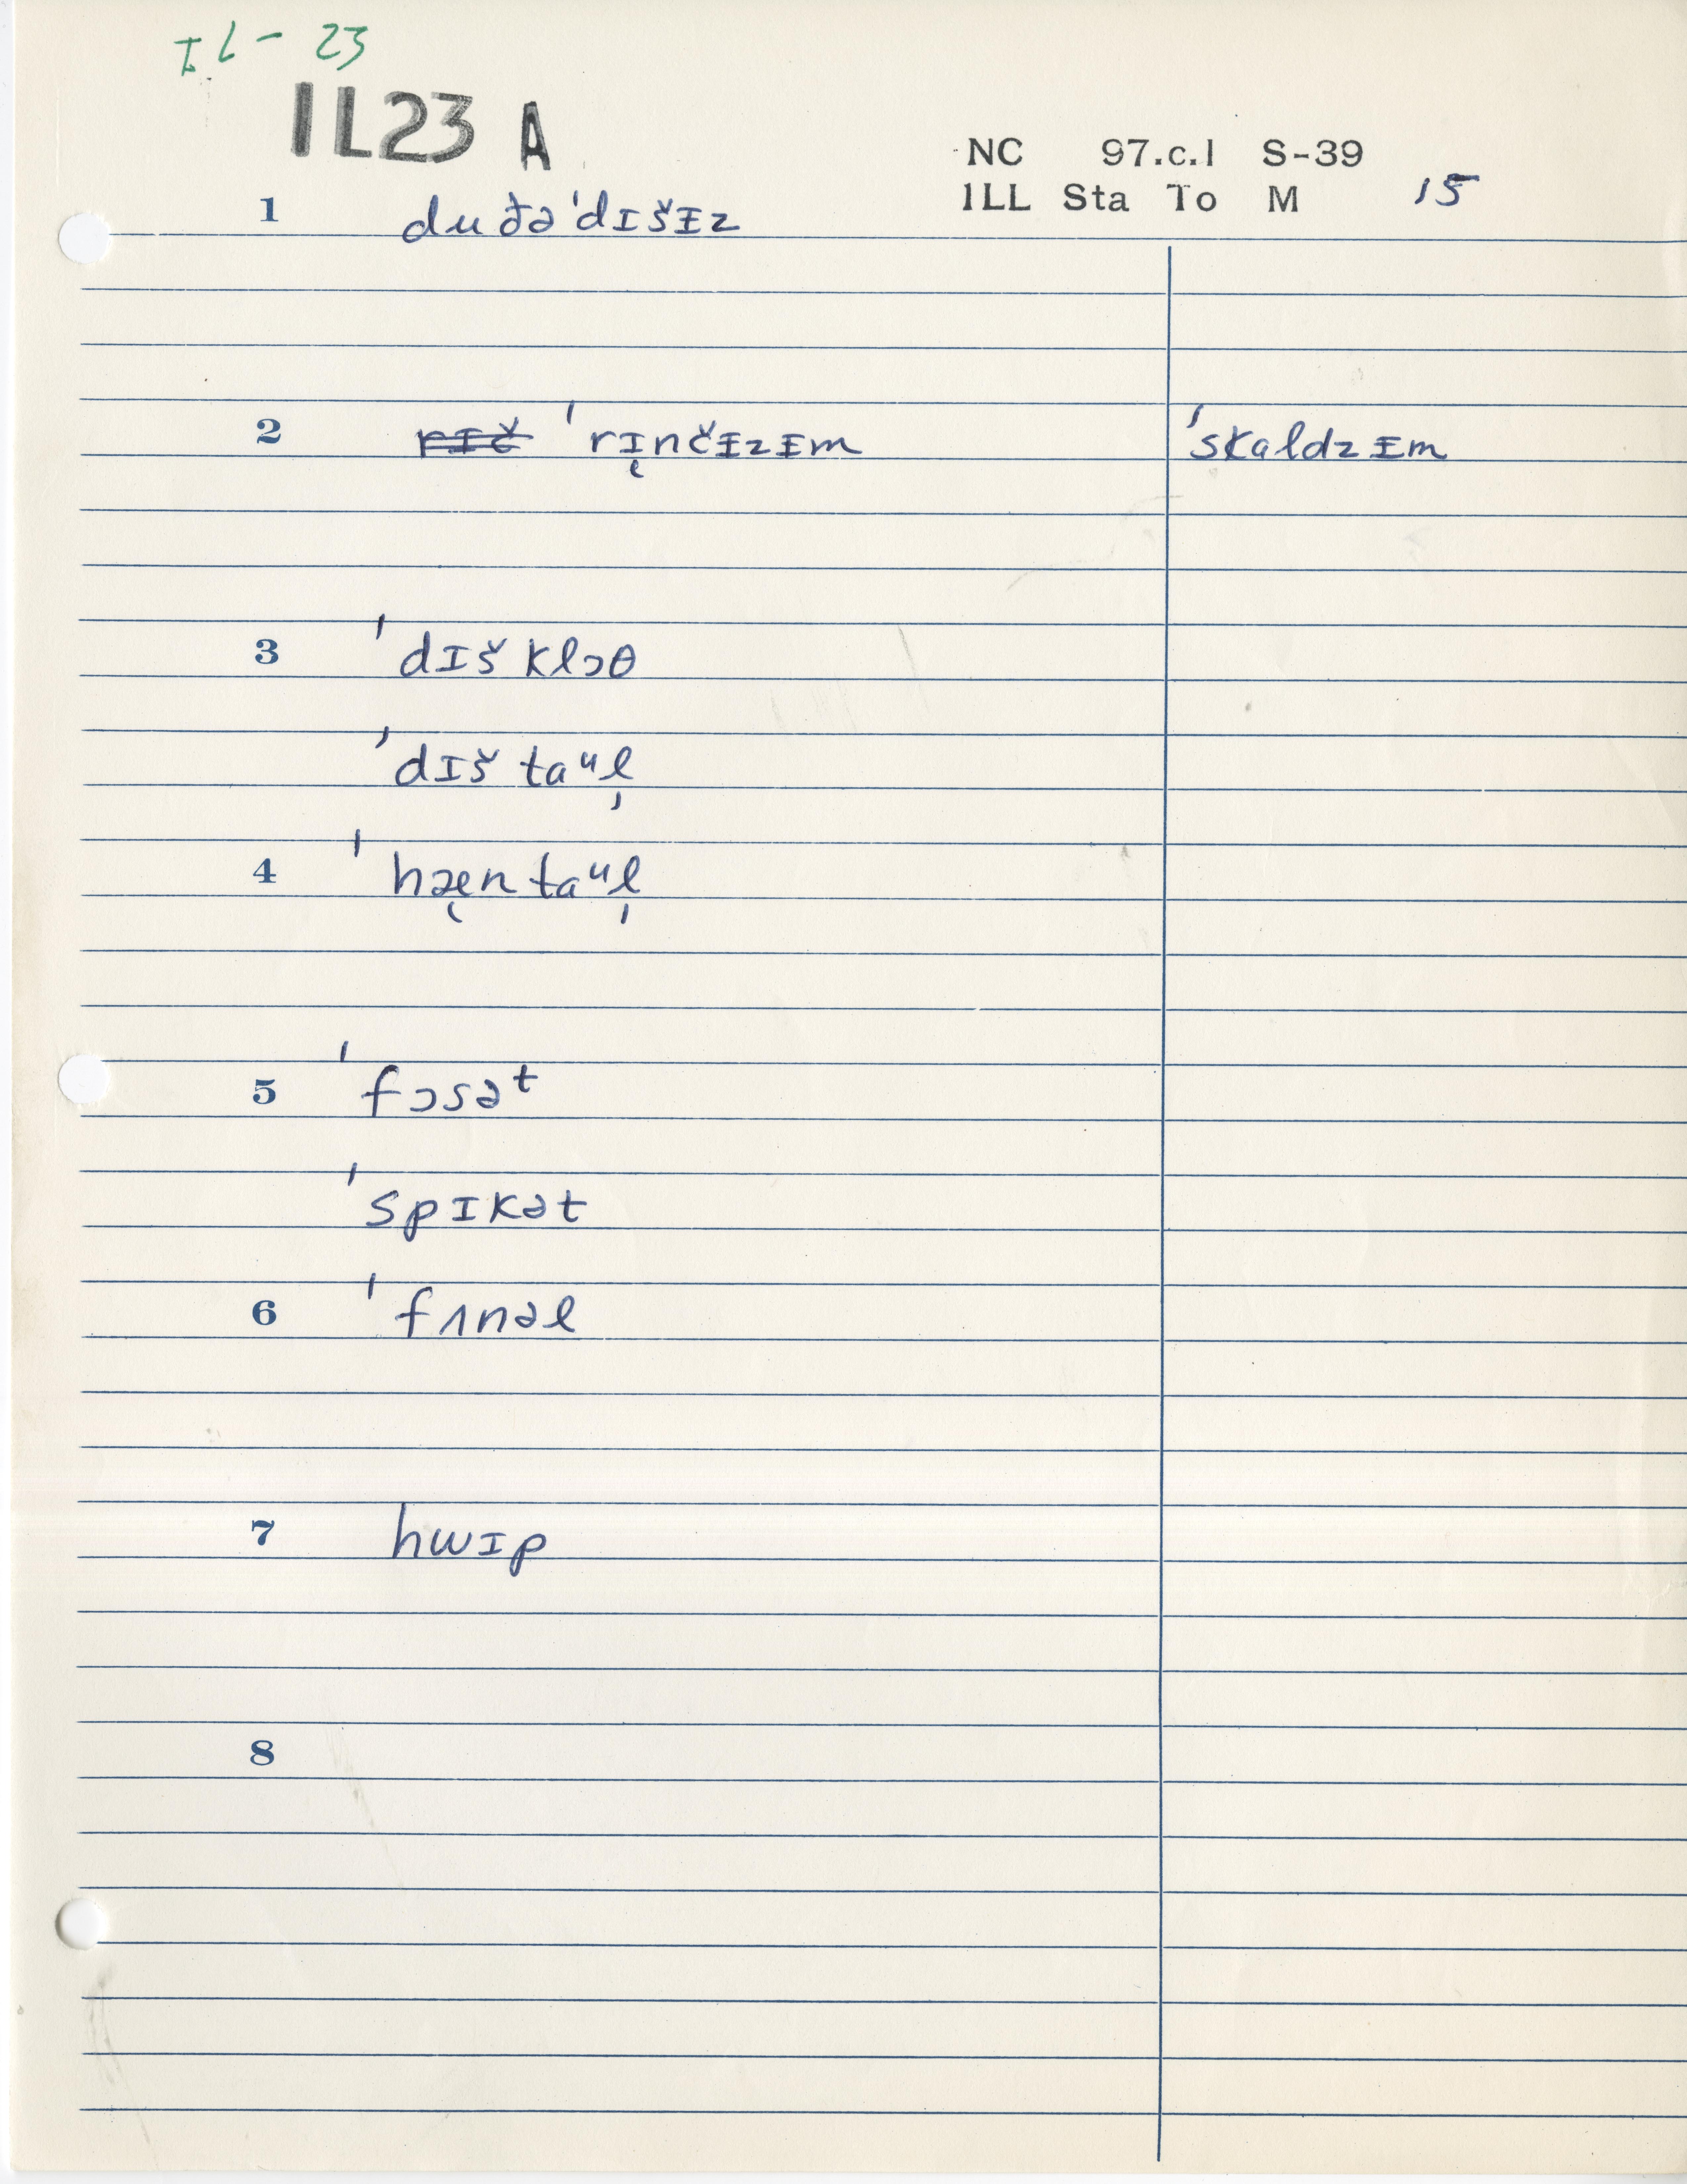 IL-23
IL23 A
NC 97.c.1 S-39
ILL Sta To M 15
1 duðə'dɪšᵻz
2 'rɪ̨nčᵻzᵻm 'skaldzᵻm
3 'dɪš klɔθ
'dɪš taᵘl̩
4 'hæ̨n taᵘl̩
5 'fɔsəᵗ
'spɪkət
6 'fʌnəl
7 hwɪp
8